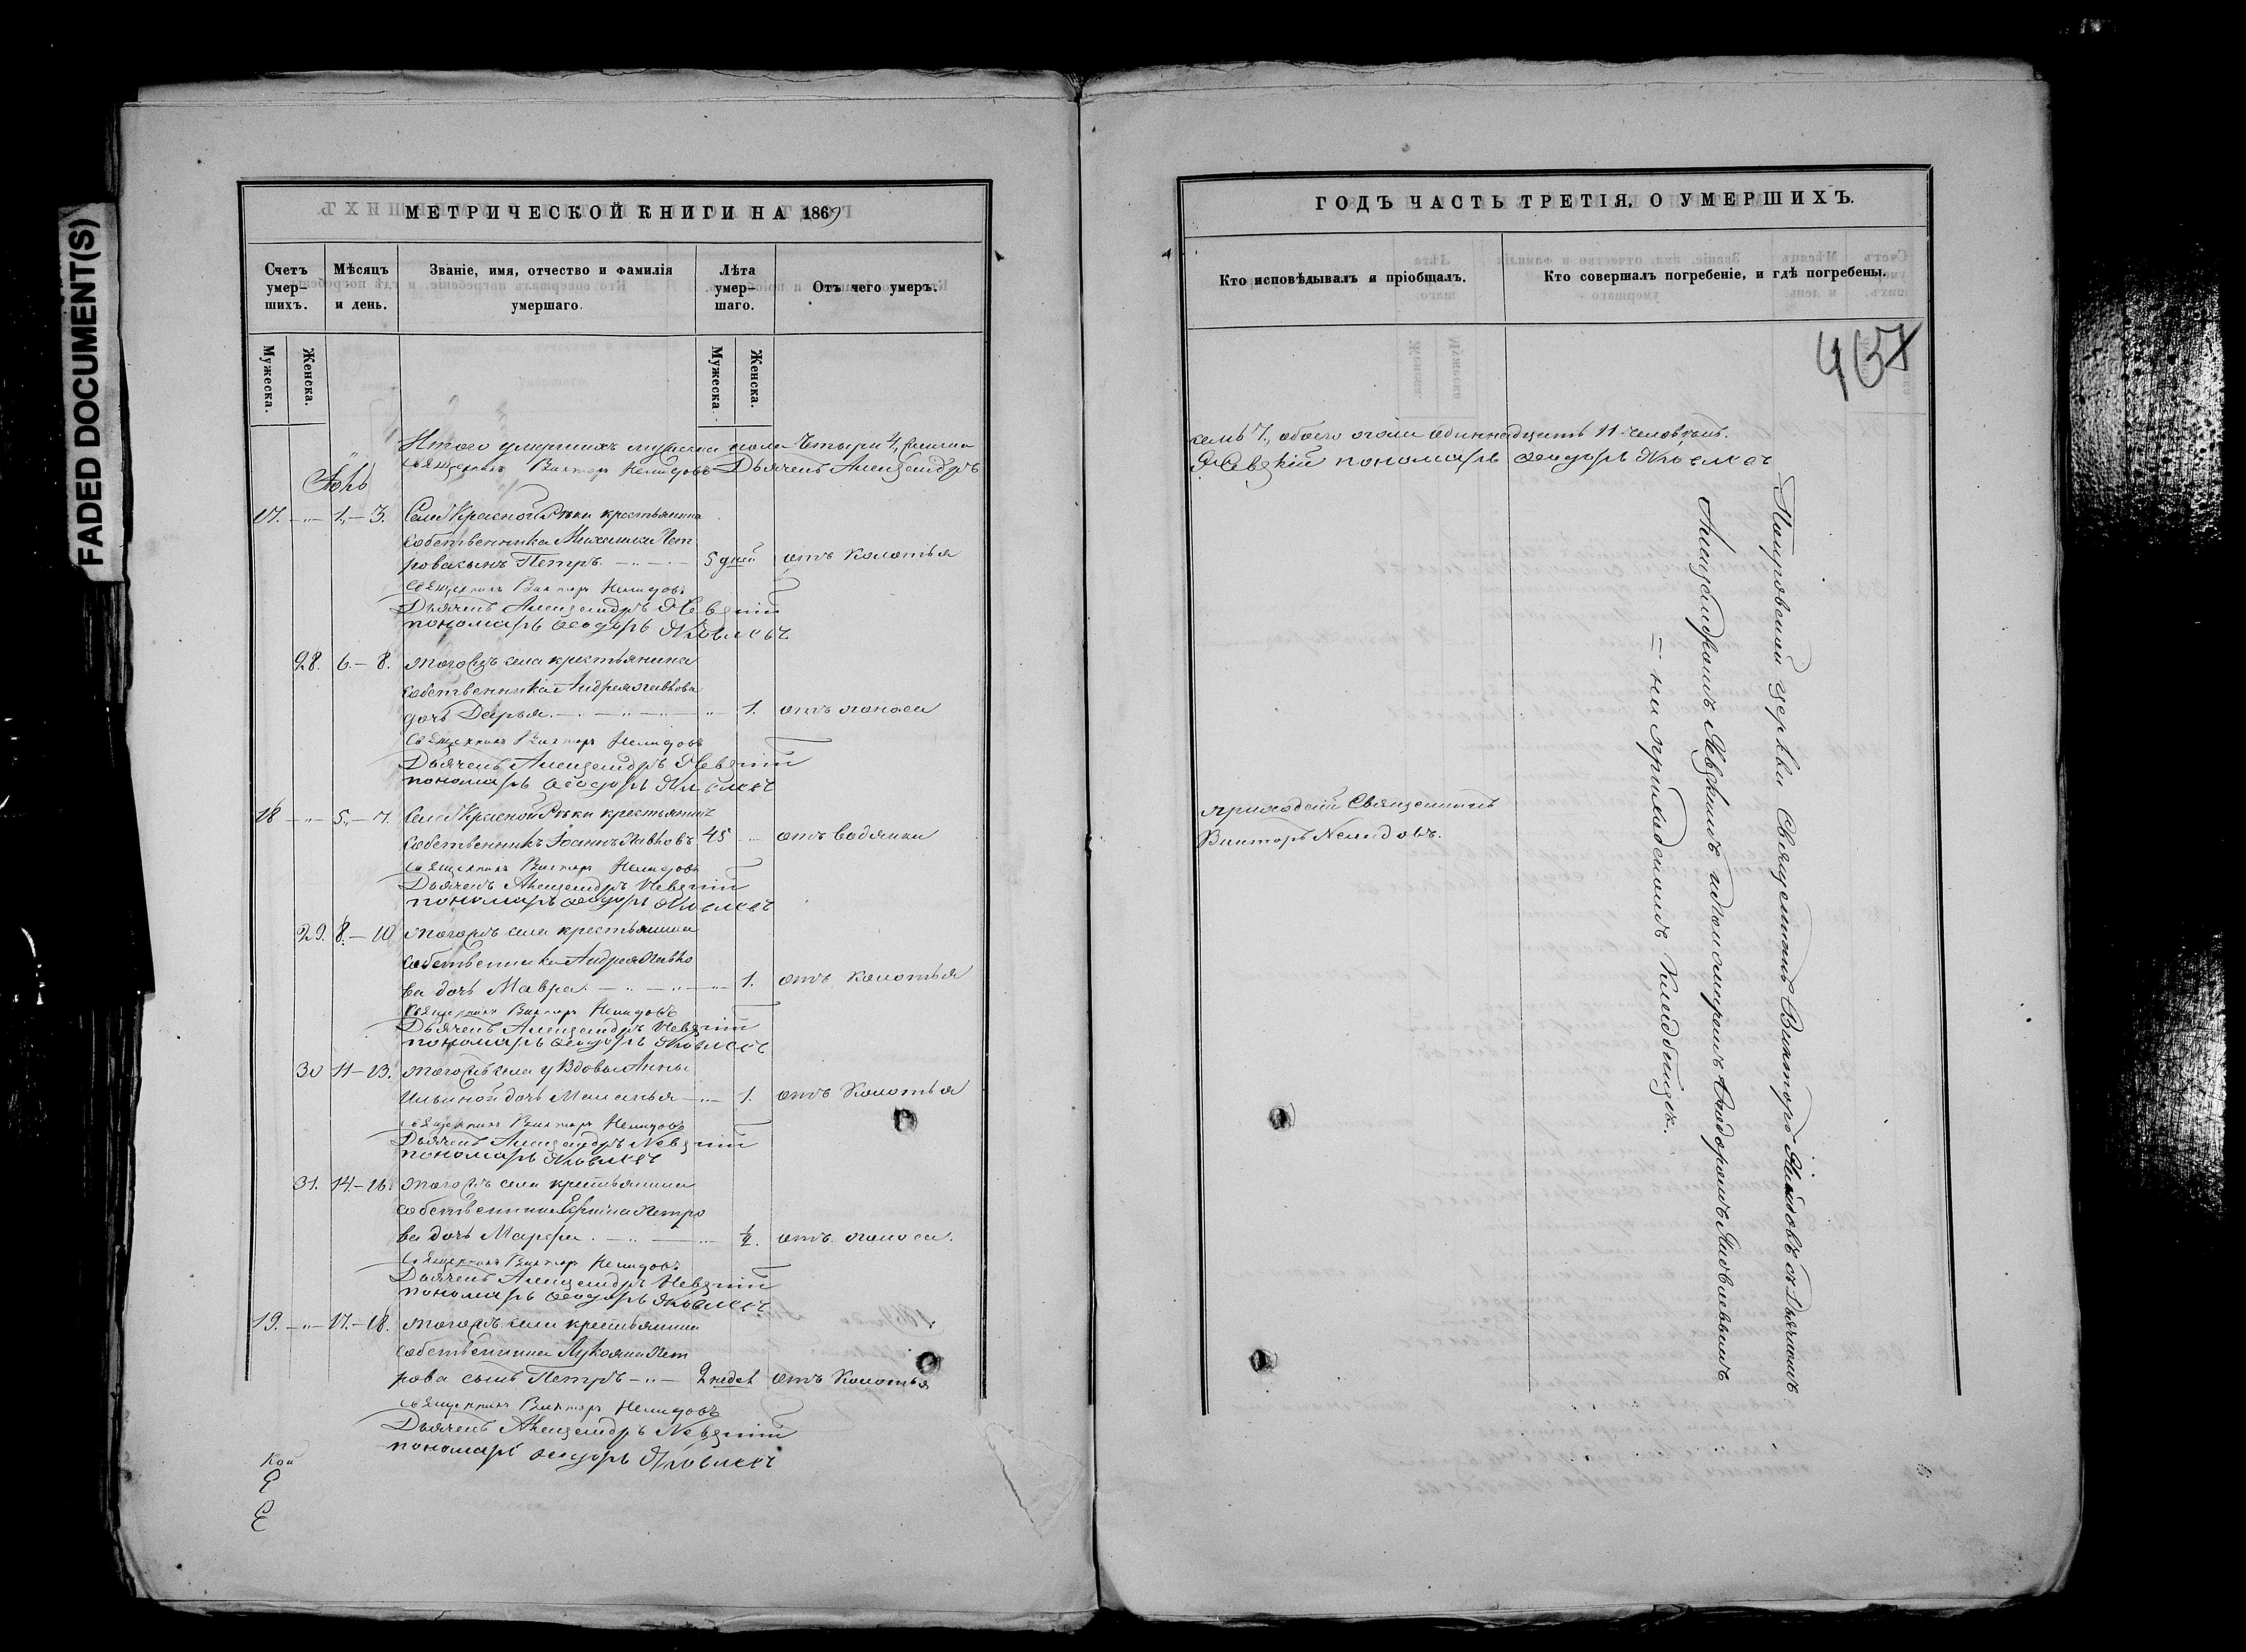 FADED DOCUMENT(S)
МЕТРИЧЕСКОЙ КНИГИ НА 1869
Счетъ умер-шихъ.
Мѣсяцъ и день.
Званіе, имя, отчество и фамилія умершаго.
Лѣта умер-шаго.
Отъ чего умеръ.
Мужеска.
Женска.
Мужеска.
Женска.
Итого умершихъ мужеска пола четыри 4, женска
Священникъ Викторъ Немидовъ Дьячекъ Александръ
17. — „ — 1. — 3. Села Красной Рѣки крестьянина
собственника Михаила Пет
рова сынъ Петръ. — 5 дней отъ колотья
Священникъ Викторъ Немидовъ
Дьячекъ Александръ Невскій
пономарь Феодоръ Яковлевъ
28. 6. — 8. того жъ села крестьянина
собственника Андрея Павлова
дочь Дарья. — „ — 1. отъ поноса
Священникъ Викторъ Немидовъ
Дьячекъ Александръ Невскій
пономарь Феодоръ Яковлевъ
18 — „ — 5. — 7. Села Красной Рѣки крестьянинъ
собственникъ Іоаннъ Павловъ 45 — отъ водянки
Священникъ Викторъ Немидовъ
Дьячекъ Александръ Невскій
пономарь Феодоръ Яковлевъ
29. 8. — 10 того жъ села крестьянина
собственника Андрея Павло
ва дочь Мавра. — „ — 1. отъ колотья
Священникъ Викторъ Немидовъ
Дьячекъ Александръ Невскій
пономарь Феодоръ Яковлевъ
30 11 — 13. того жъ села у Вдовы Анны
Ильиной дочь Маланья — „ — 1. отъ колотья
Священникъ Викторъ Немидовъ
Дьячекъ Александръ Невскій
пономарь Яковлевъ
31. 14. — 16. того жъ села крестьянина
собственника Петро
ва дочь Марфа. — „ — ½. отъ поноса.
Священникъ Викторъ Немидовъ
Дьячекъ Александръ Невскій
пономарь Феодоръ Яковлевъ
19. — „ — 17. — 18. того жъ села крестьянина
собственника Лукояна Пет
рова сынъ Петръ — „ — 2 недел отъ колотья
Священникъ Викторъ Немидовъ
Дьячекъ Александръ Невскій
пономарь Феодоръ Яковлевъ
ГОДЪ ЧАСТЬ ТРЕТІЯ, О УМЕРШИХЪ.
Кто исповѣдывалъ и пріобщалъ.
Кто совершалъ погребеніе, и гдѣ погребены.
семь 7., обоего пола одиннадцать 11 человѣкъ.
Невскій пономарь Феодоръ Яковлевъ
приходскій Священникъ
Викторъ Немидовъ.
Покровской церкви Священникъ Викторъ Немидовъ съ Дьячкомъ
Александромъ Невскимъ и пономаремъ Феодоромъ Яковлевымъ
— на приходскомъ кладбищѣ.